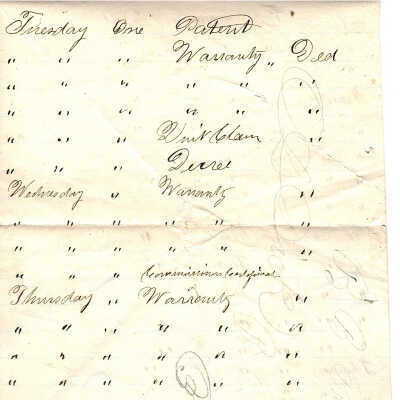 Tuesday One Patent
" " " Warranty " Ded
" " " " " "
" " " " " "
" " " Quit Claim "
" " " Decree
Wednesday " Warranty "
" " " " "
" " " " "
" " " Commissioner Certificate
Thursday " Warranty "
" " " " " "
" " " " " "
" " " " " "